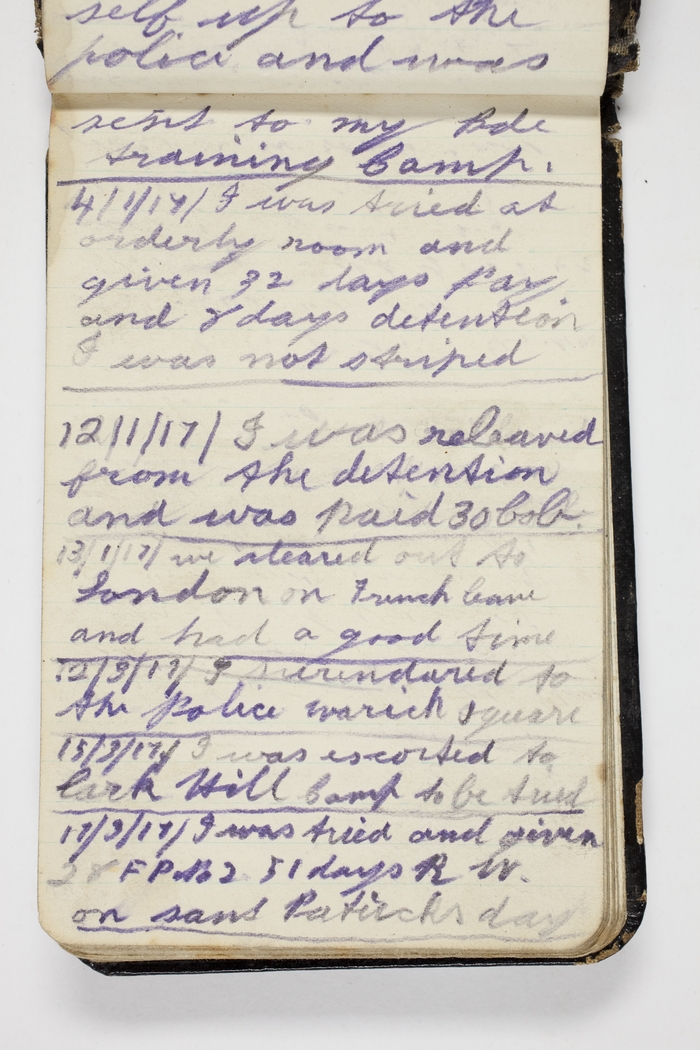 self up to the
police and was
sent to my Bde
training Camp.
4/1/17/ I was tried at
orderly room and
given 32 days Pay
and 8 days detention
I was not striped
12/1/17/ I was releaved
from the detention
and was paid 30 bob.
13/1/17/ we cleared out to
London on French leave
and had a good time
12/3/17/ I surendured to
the Police warick square
15/3/17/ I was escorted to
lark Hill Camp to be tried
17/3/17/ I was tried and given
28 F P No 2 51 days R W.
on sant Patircks day